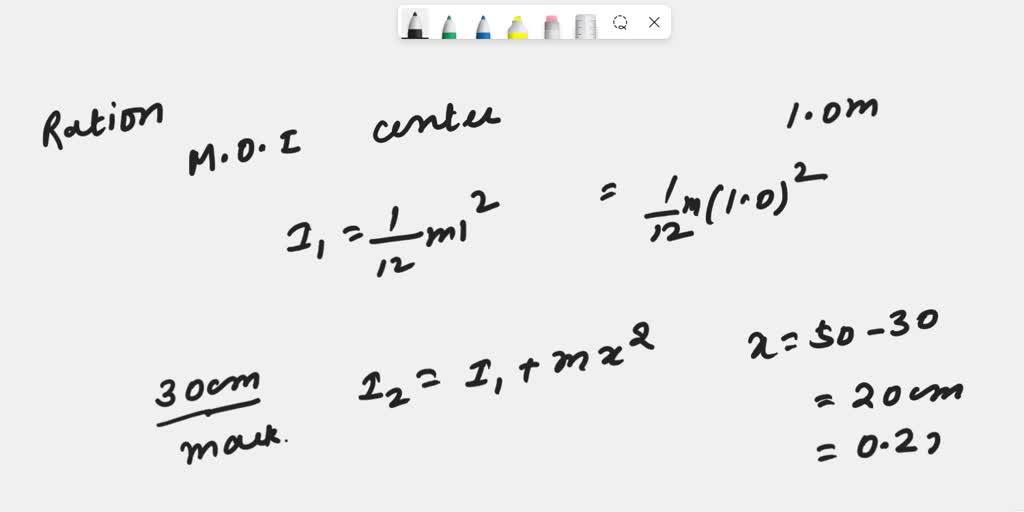 Ration
M.O.I center 1.0m
I₁ = 1/12 ml² = 1/12 m(1.0)²
30cm mark. I₂ = I₁ + mx² x = 50-30
= 20cm
= 0.2